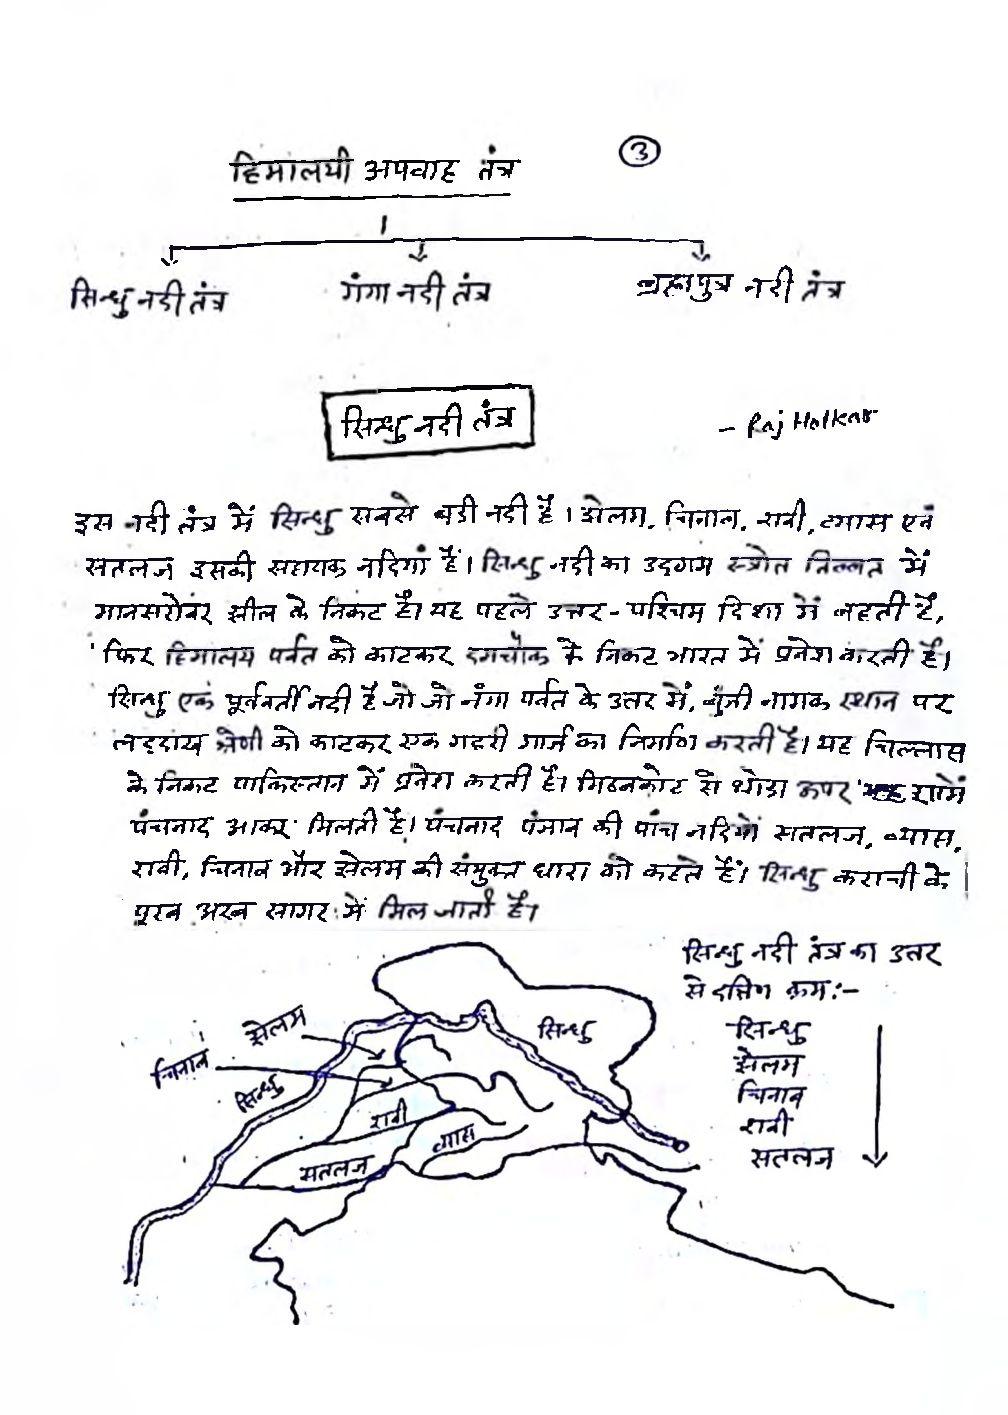 हिमालयी अपवाह तंत्र
3
सिन्धु नदी तंत्र
गंगा नदी तंत्र
ब्रह्मपुत्र नदी तंत्र
सिन्धु नदी तंत्र
- Raj Holkar
इस नदी तंत्र में सिन्धु सबसे बडी नदी है। झेलम, चिनाब, रावी, व्यास एवं
सतलज इसकी सहायक नदियां हैं। सिन्धु नदी का उदगम स्त्रोत तिब्बत में
मानसरोवर झील के निकट है। यह पहले उत्तर-पश्चिम दिशा में बहती है,
फिर हिमालय पर्वत को काटकर दमचौक के निकट भारत में प्रवेश करती है।
सिन्धु एक पूर्ववर्ती नदी है जो जो नंगा पर्वत के उत्तर में, बुंजी नामक स्थान पर
लद्दाख श्रेणी को काटकर एक गहरी गार्ज का निर्माण करती है। यह चिल्लास
के निकट पाकिस्तान में प्रवेश करती है। मिठनकोट से थोडा ऊपर इसमें
पंचनाद आकर मिलती है। पंचनाद पंजाब की पांच नदियों सतलज, व्यास,
रावी, चिनाब और झेलम की संयुक्त धारा को कहते हैं। सिन्धु कराची के
पूरब अरब सागर में मिल जाती है।
सिन्धु नदी तंत्र का उत्तर
से दक्षिण क्रम:-
सिन्धु
झेलम
चिनाब
रावी
सतलज
झेलम
सिन्धु
चिनाब
सिन्धु
रावी
व्यास
सतलज